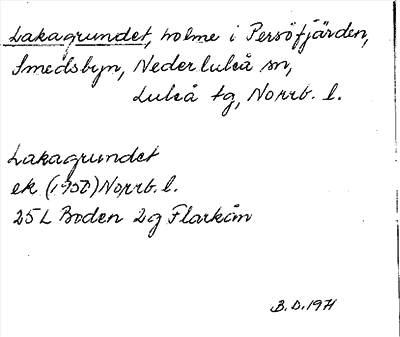 Lakagrundet, holme i Persöfjärden,
Smedsbyn, Nederluleå sn,
Luleå tg, Norrb. l.
Lakagrundet
ek (1950) Norrb. l.
25L Boden 2g Flarkån
B.D. 1971